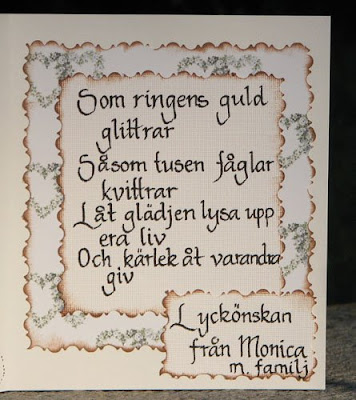 Som ringens guld
glittrar
Såsom tusen fåglar
kvittrar
Låt glädjen lysa upp
era liv
Och kärlek åt varandra
giv
Lyckönskan
från Monica
m. familj